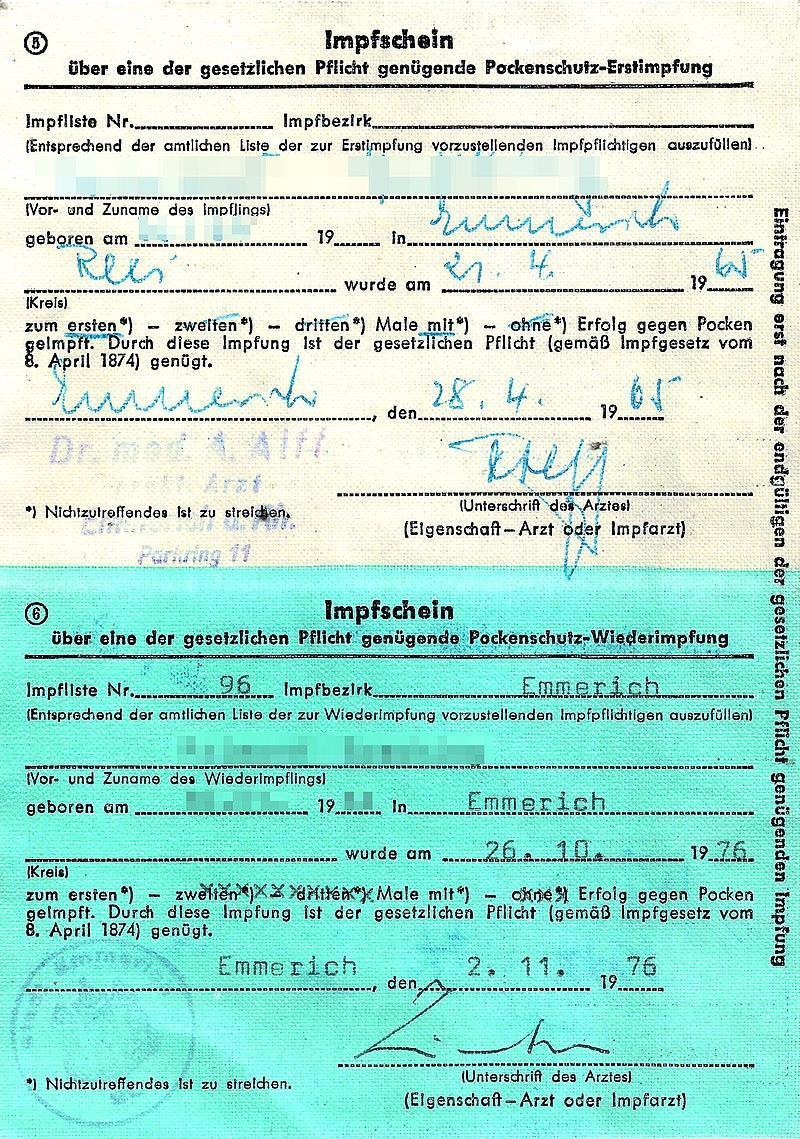 5 Impfschein
über eine der gesetzlichen Pflicht genügende Pockenschutz-Erstimpfung
Impfliste Nr. Impfbezirk
(Entsprechend der amtlichen Liste der zur Erstimpfung vorzustellenden Impfpflichtigen auszufüllen)
(Vor- und Zuname des Impflings)
geboren am 19 in Emmerich
Rees wurde am 21. 4. 1965
(Kreis)
zum ersten*) – zweiten*) – dritten*) Male mit*) – ohne*) Erfolg gegen Pocken
geimpft. Durch diese Impfung ist der gesetzlichen Pflicht (gemäß Impfgesetz vom
8. April 1874) genügt.
Emmerich, den 28. 4. 1965
Dr. med. A. Alff
prakt. Arzt
(Unterschrift des Arztes)
*) Nichtzutreffendes ist zu streichen.
(Eigenschaft–Arzt oder Impfarzt)
Parkring 11
6 Impfschein
über eine der gesetzlichen Pflicht genügende Pockenschutz-Wiederimpfung
Impfliste Nr. 96 Impfbezirk Emmerich
(Entsprechend der amtlichen Liste der zur Wiederimpfung vorzustellenden Impfpflichtigen auszufüllen)
(Vor- und Zuname des Wiederimpflings)
geboren am 19 in Emmerich
wurde am 26. 10. 1976
(Kreis)
zum ersten*) – zweiten*) – dritten*) Male mit*) – ohne*) Erfolg gegen Pocken
geimpft. Durch diese Impfung ist der gesetzlichen Pflicht (gemäß Impfgesetz vom
8. April 1874) genügt.
Emmerich, den 2. 11. 1976
Stadt Emmerich
*) Nichtzutreffendes ist zu streichen.
(Unterschrift des Arztes)
(Eigenschaft–Arzt oder Impfarzt)
Eintragung erst nach der endgültigen der gesetzlichen Pflicht genügenden Impfung